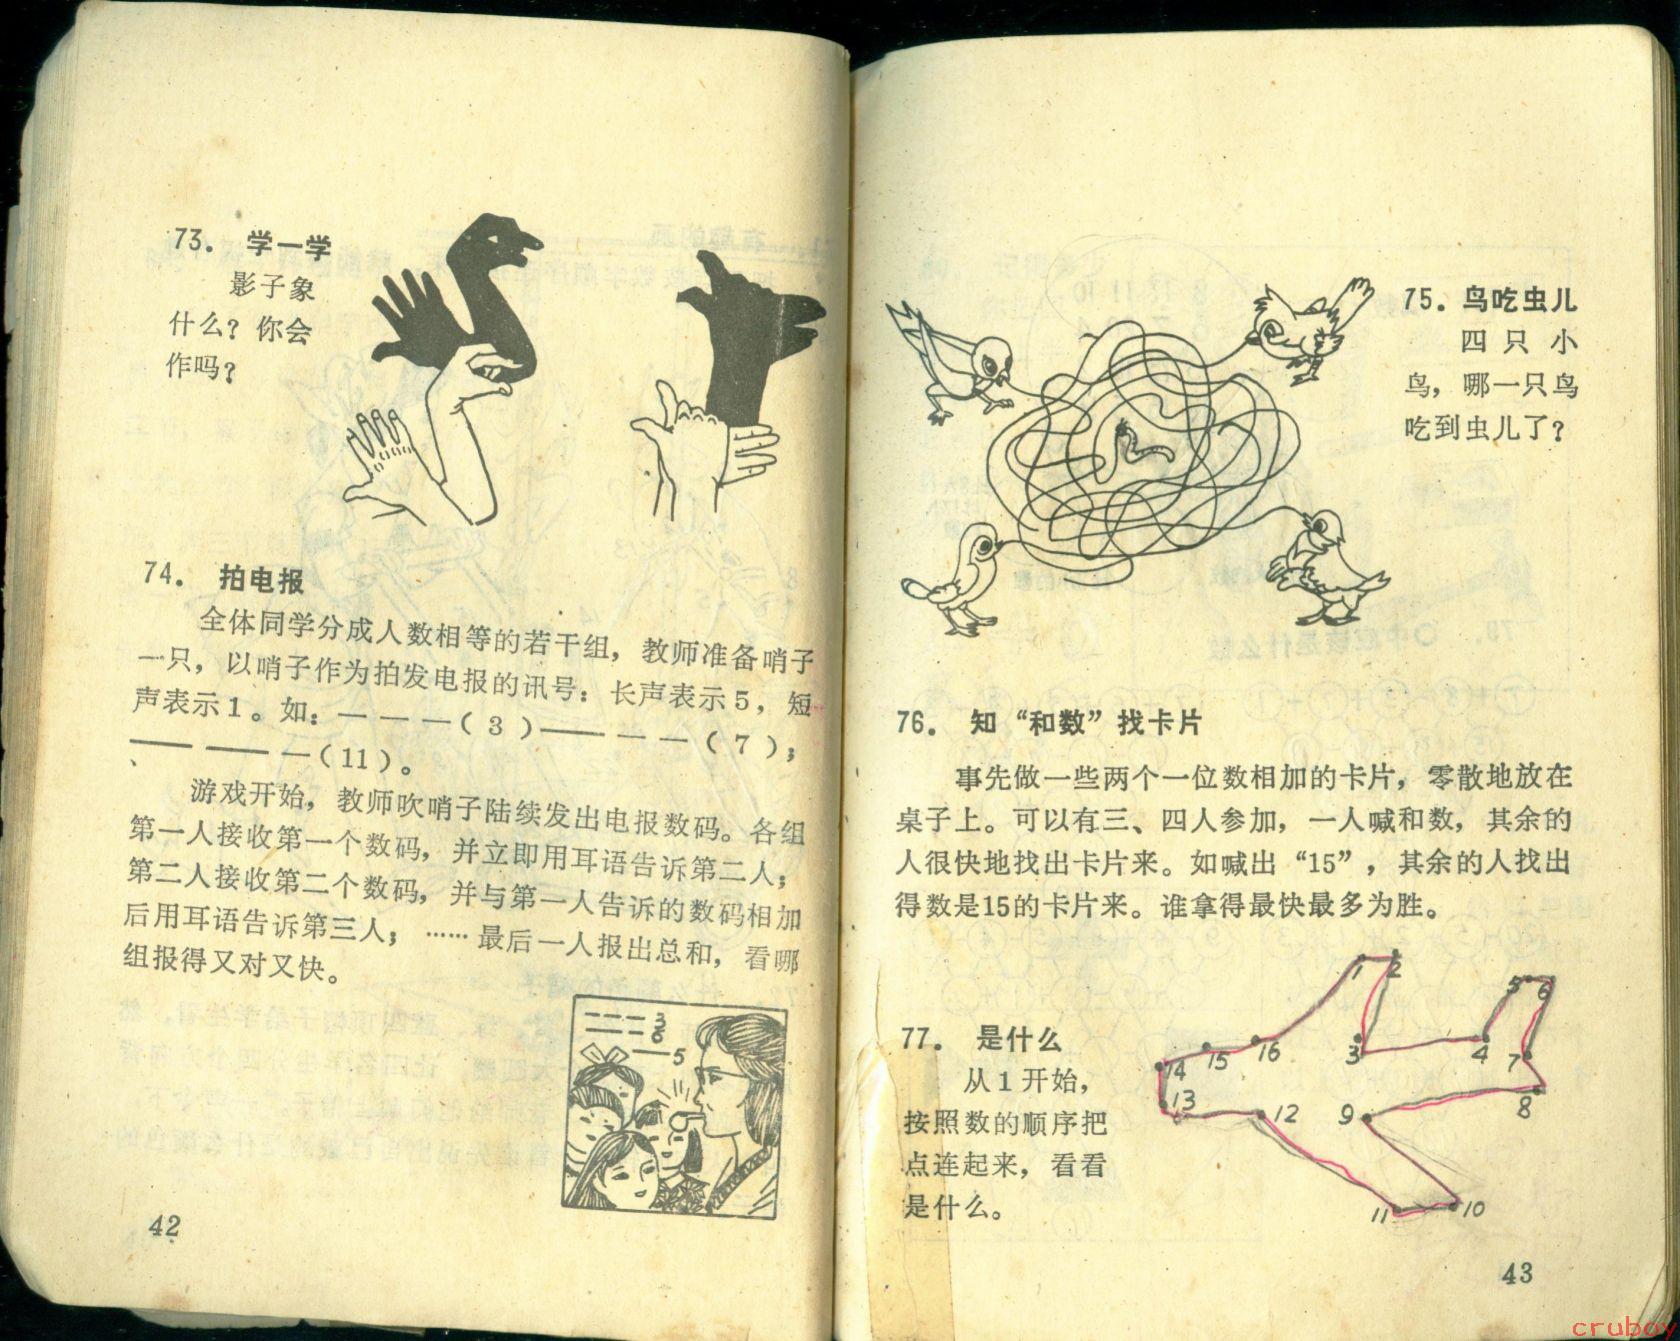 73. 学一学
影子象
什么？你会
作吗？
74. 拍电报
全体同学分成人数相等的若干组，教师准备哨子
一只，以哨子作为拍发电报的讯号：长声表示5，短
声表示1。如：— — —（3）—— — —（7）；
—— —— —（11）。
游戏开始，教师吹哨子陆续发出电报数码。各组
第一人接收第一个数码，并立即用耳语告诉第二人；
第二人接收第二个数码，并与第一人告诉的数码相加
后用耳语告诉第三人；……最后一人报出总和，看哪
组报得又对又快。
3
6
5
42
75. 鸟吃虫儿
四只小
鸟，哪一只鸟
吃到虫儿了？
76. 知“和数”找卡片
事先做一些两个一位数相加的卡片，零散地放在
桌子上。可以有三、四人参加，一人喊和数，其余的
人很快地找出卡片来。如喊出“15”，其余的人找出
得数是15的卡片来。谁拿得最快最多为胜。
77. 是什么
从1开始，
按照数的顺序把
点连起来，看看
是什么。
1 2
5 6
14 15 16 3 4 7
13 12 9 8
11 10
43
cruboy